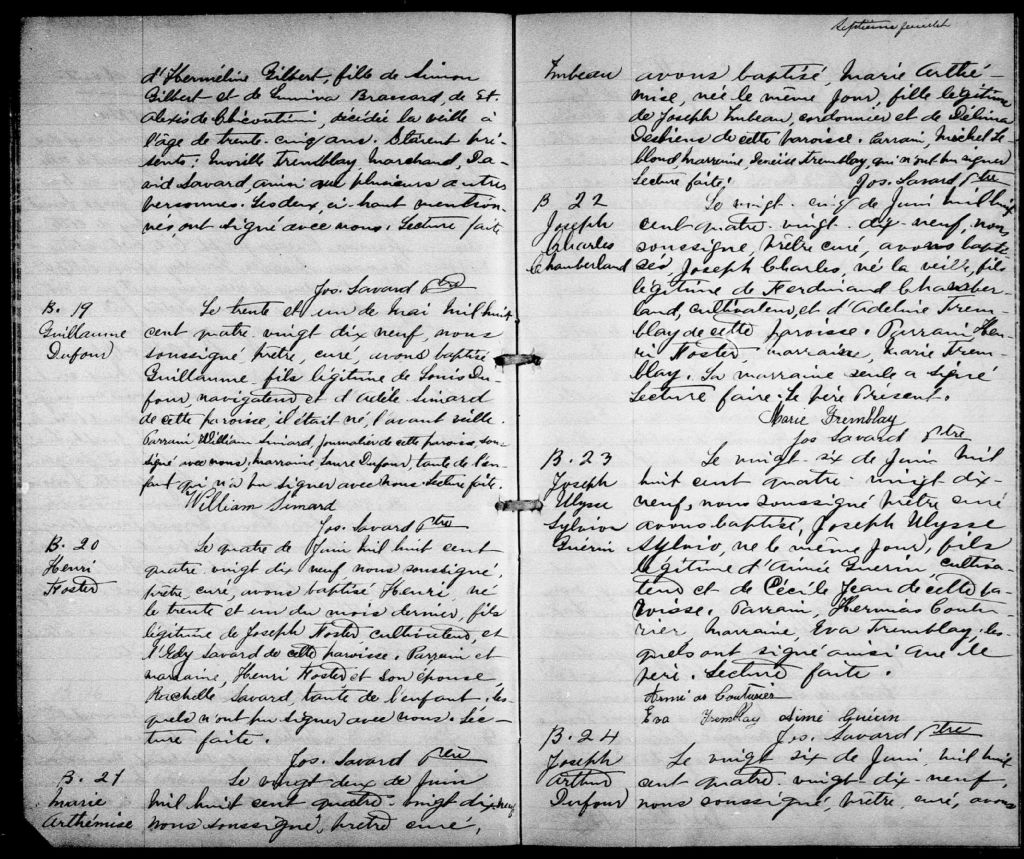 d'Herméline Gilbert, fille de Simon
Gilbert et de Lumina Brassard, de St.
Alexis de Chicoutimi, décédée la veille à
l'âge de trente-cinq ans. Étaient pré-
sents: Tremblay Marchand, Da-
vid Savard, ainsi que plusieurs autres
personnes. Les deux, ci-haut mention-
nés ont signé avec nous. Lecture faite
Jos. Savard Ptre
B. 19
Guillaume
Dufour
Le trente et un de Mai mil huit
cent quatre vingt dix neuf, nous
soussigné Prêtre, curé, avons baptisé
Guillaume, fils légitime de Louis Du-
four, navigateur et d'Adèle Simard
de cette paroisse, il était né l'avant veille.
Parrain, William Simard, journalier de cette paroisse, sous-
signé avec nous, marraine Laure Dufour, tante de l'en-
fant qui n'a pu signer avec nous. Lecture faite.
William Simard
Jos. Savard Ptre
B. 20
Henri
Foster
Le quatre de Juin mil huit cent
quatre vingt dix neuf nous soussigné,
prêtre, curé, avons baptisé Henri, né
le trente et un du mois dernier, fils
légitime de Joseph Foster cultivateur, et
d' Savard de cette paroisse. Parrain et
marraine, Henri Foster et son épouse
Rachelle Savard, tante de l'enfant. les-
quels n'ont pu signer avec nous. Léc-
ture faite.
Jos. Savard Ptre
B. 21
Marie
Arthémise
Le vingt deux de Juin
mil huit cent quatre-vingt dix neuf
nous soussigné, Prêtre curé,
Septième feuillet
Imbeau
avons baptisé, Marie Arthé-
mise, née le même jour, fille légitime
de Joseph Imbeau, cordonnier et de Délima
Desbiens de cette paroisse. Parrain, Michel Le-
blond marraine, Denise Tremblay, qui n'ont pu signer
Lecture faite.
Jos. Savard Ptre
B. 22
Joseph
Charles
Chamberland
Le vingt-cinq de Juin mil huit
cent quatre-vingt-dix-neuf, nous
soussigné, Prêtre curé, avons bapti-
sés, Joseph Charles, né la veille, fils
légitime de Ferdinand Chamber-
land, cultivateur, et d'Adeline Trem-
blay de cette paroisse. Parrain, Hen-
ri Foster, marraine, Marie Trem-
blay. La marraine seule a signé
Lecture faite. Le père Présent.
Marie Tremblay
Jos Savard Ptre
B. 23
Joseph
Ulysse
Sylvio
Guérin
Le vingt-six de Juin mil
huit cent quatre-vingt-dix-
neuf, nous soussigné Prêtre curé
avons baptisé, Joseph Ulysse
Sylvio, né le même jour, fils
légitime d'Aimée Guérin cultiva-
teur et de Cécile Jean de cette pa-
roisse. Parrain, Herménas Coutu-
rier, Marraine, Eva Tremblay, les-
quels ont signé ainsi que le
père. Lecture faite.
Couturier
Eva Tremblay Aimé Guérin
Jos. Savard Ptre
B. 24
Joseph
Arthur
Dufour
Le vingt six de Juin, mil huit
cent quatre-vingt-dix-neuf,
nous soussigné, Prêtre, curé, avons